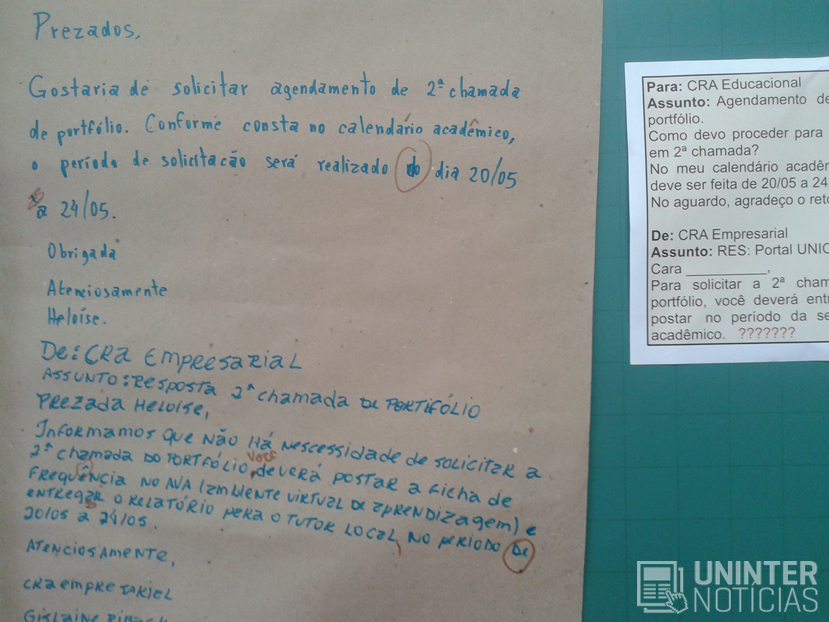 Prezados,
Gostaria de solicitar agendamento de 2ª chamada
de portfólio. Conforme consta no calendário acadêmico,
o período de solicitacão será realizado do dia 20/05
a 24/05.
Obrigada
Atenciosamente
Heloíse.
De: CRA EMPRESARIAL
ASSUNTO: RESPOSTA 2ª chamada DE PORTIFÓLIO
PREZADA HELOISE,
INFORMAMOS QUE NÃO HÁ NESCESSIDADE DE SOLICITAR A
2ª chamada DO PORTFÓLIO, você deverá POSTAR A FICHA DE
FREQUÊNCIA NO AVA (AMBIENTE VIRTUAL DE APRENDIZAGEM) E
ENTREGAR O RELATÓRIO PARA O TUTOR LOCAL, NO PERIODO DE
20/05 A 24/05.
ATENCIOSAMENTE,
CRA EMPRESARIAL
Gislaine
Para: CRA Educacional
Assunto: Agendamento de
portfólio.
Como devo proceder para
em 2ª chamada?
No meu calendário acadêm
deve ser feita de 20/05 a 24
No aguardo, agradeço o reto
De: CRA Empresarial
Assunto: RES: Portal UNIC
Cara ___________,
Para solicitar a 2ª cham
portfólio, você deverá entr
postar no período da se
acadêmico. ???????
UNINTER
NOTÍCIAS